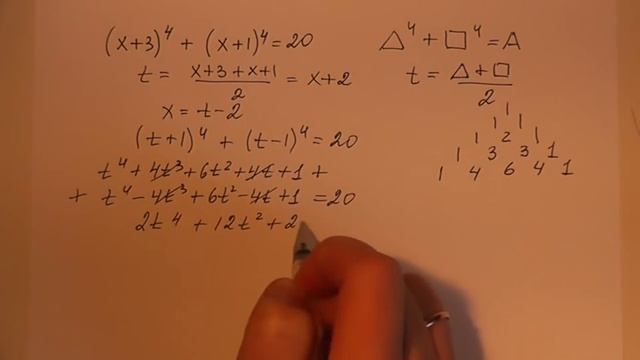 (x+3)⁴ + (x+1)⁴ = 20
t = (x+3+x+1)/2 = x+2
x = t-2
(t+1)⁴ + (t-1)⁴ = 20
t⁴ + 4t³ + 6t² + 4t + 1 +
+ t⁴ - 4t³ + 6t² - 4t + 1 = 20
2t⁴ + 12t² + 2
△⁴ + □⁴ = A
t = (△+□)/2
1
1 1
1 2 1
1 3 3 1
1 4 6 4 1